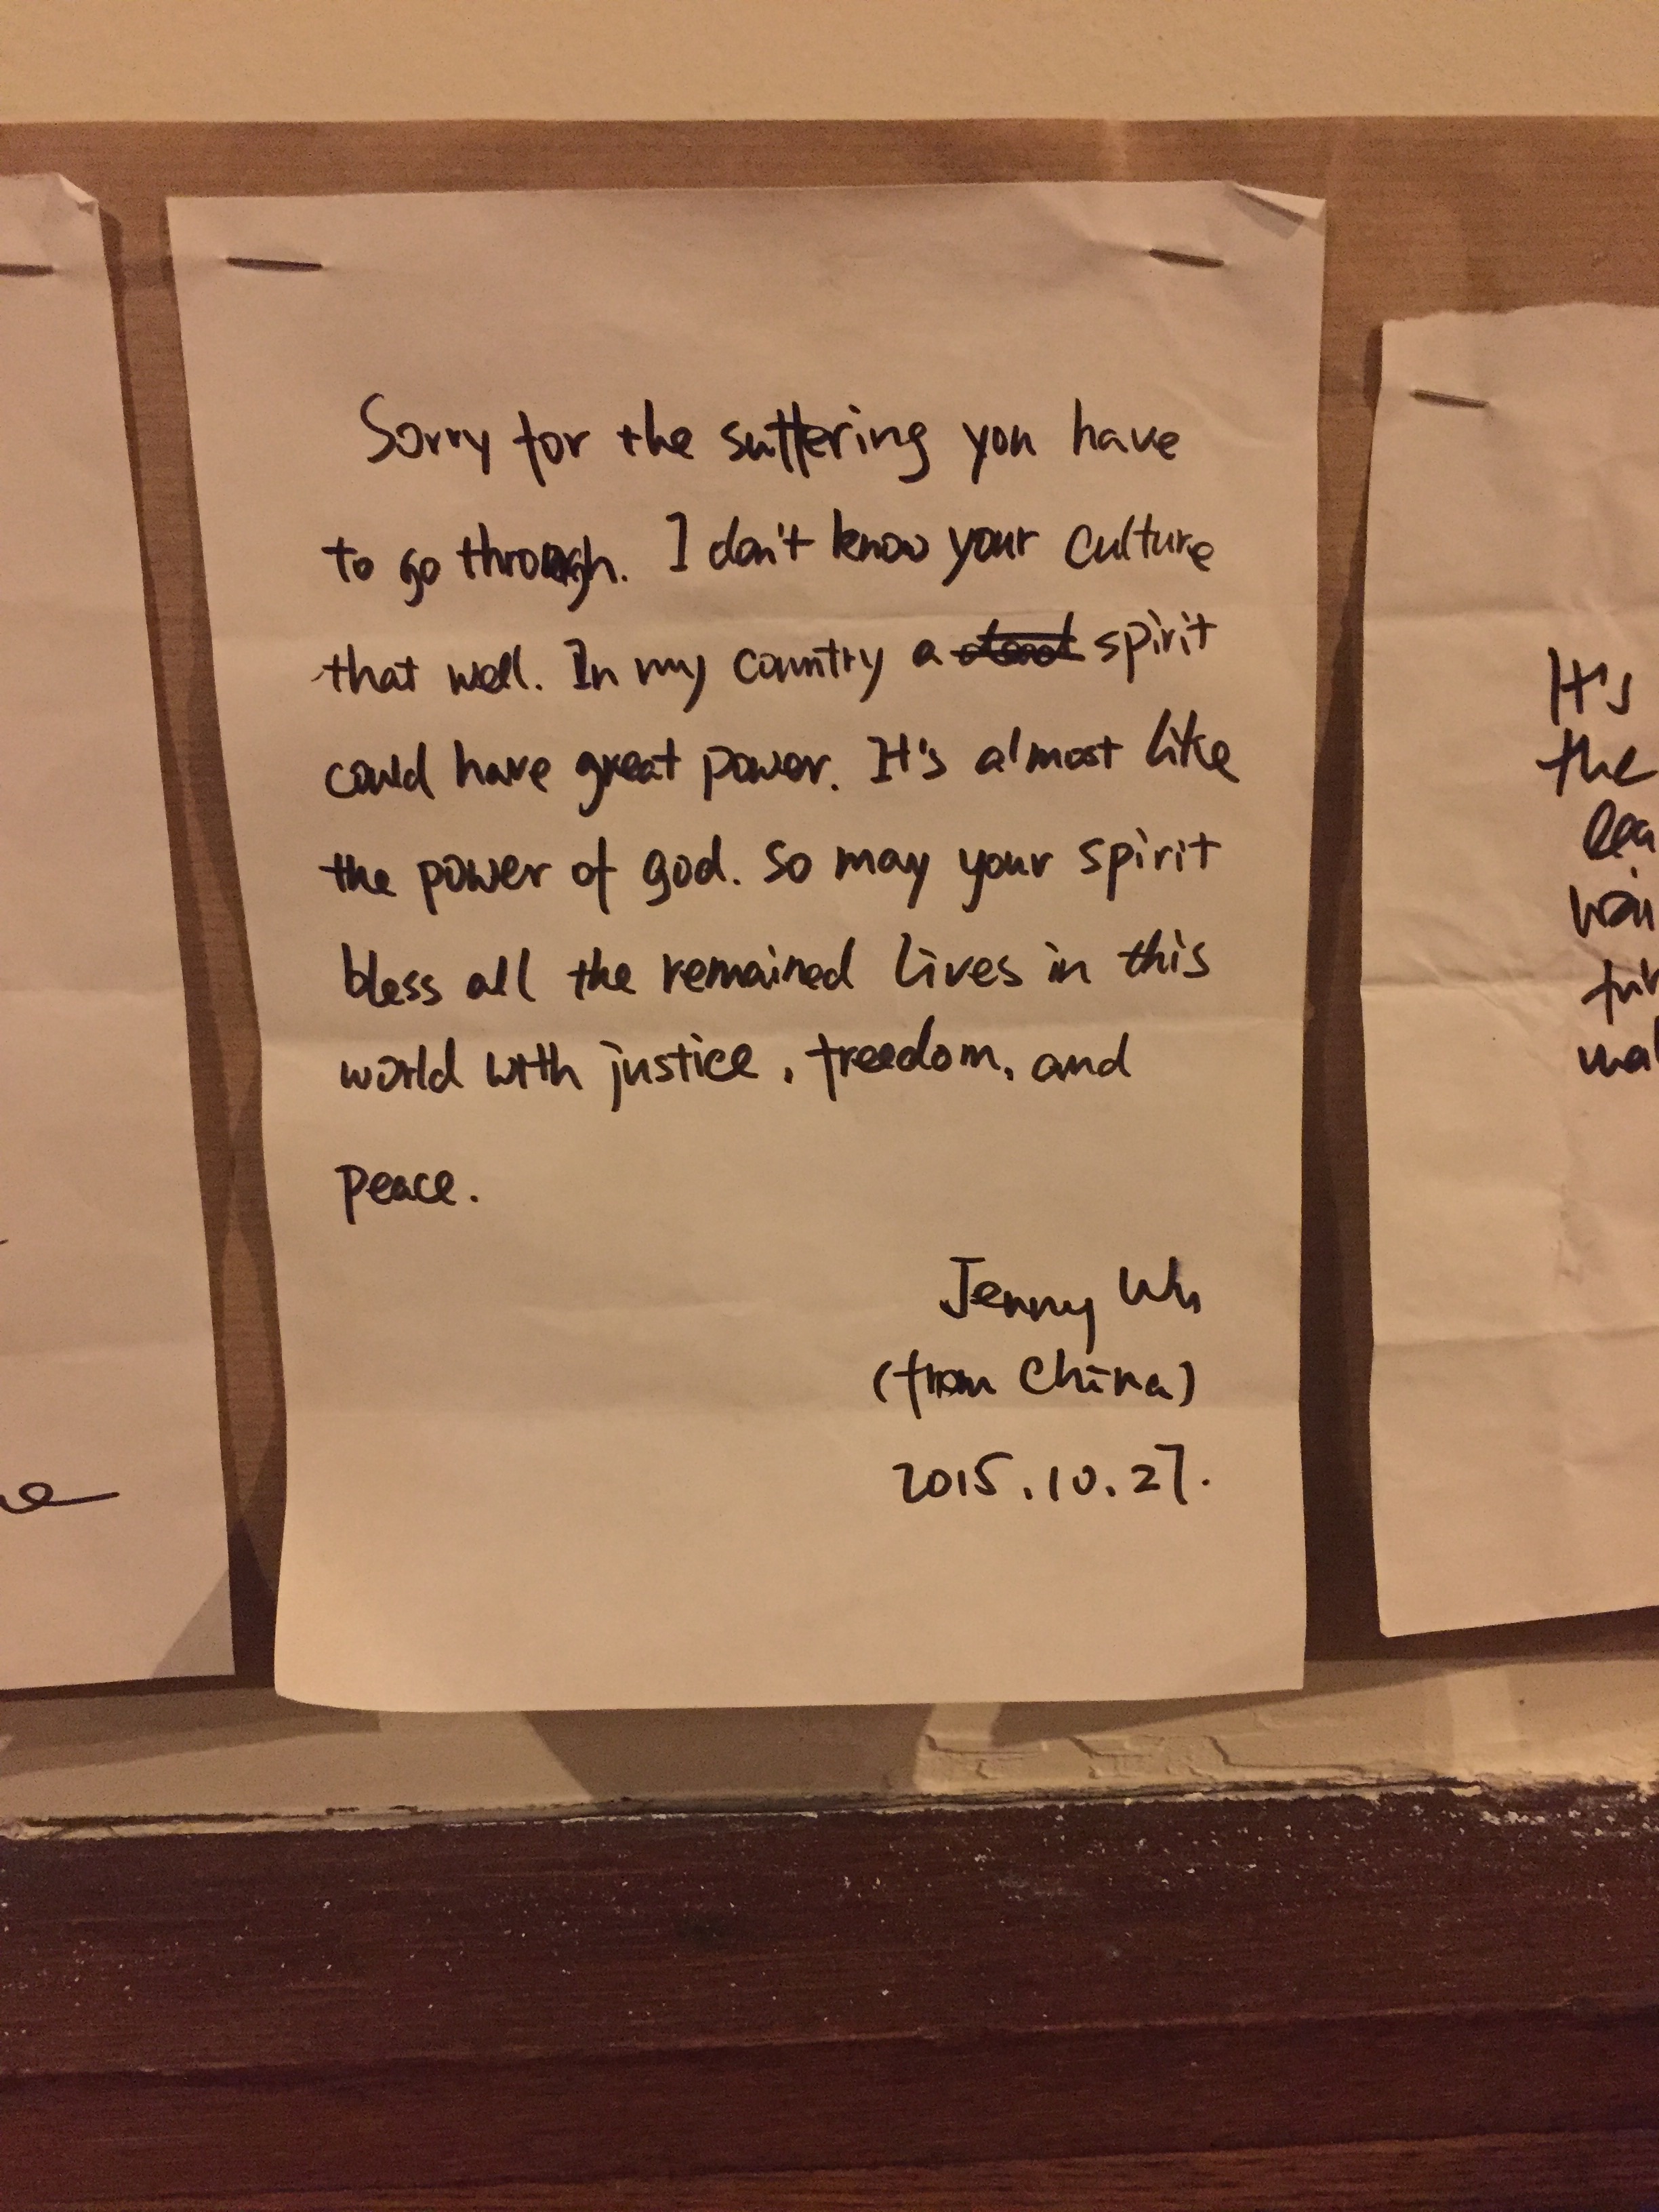 Sorry for the suffering you have
to go through. I don't know your culture
that well. In my country a dead spirit
could have great power. It's almost like
the power of god. So may your spirit
bless all the remained lives in this
world with justice, freedom, and
peace.
Jenny Wu
(from China)
2015.10.27.
It's
the